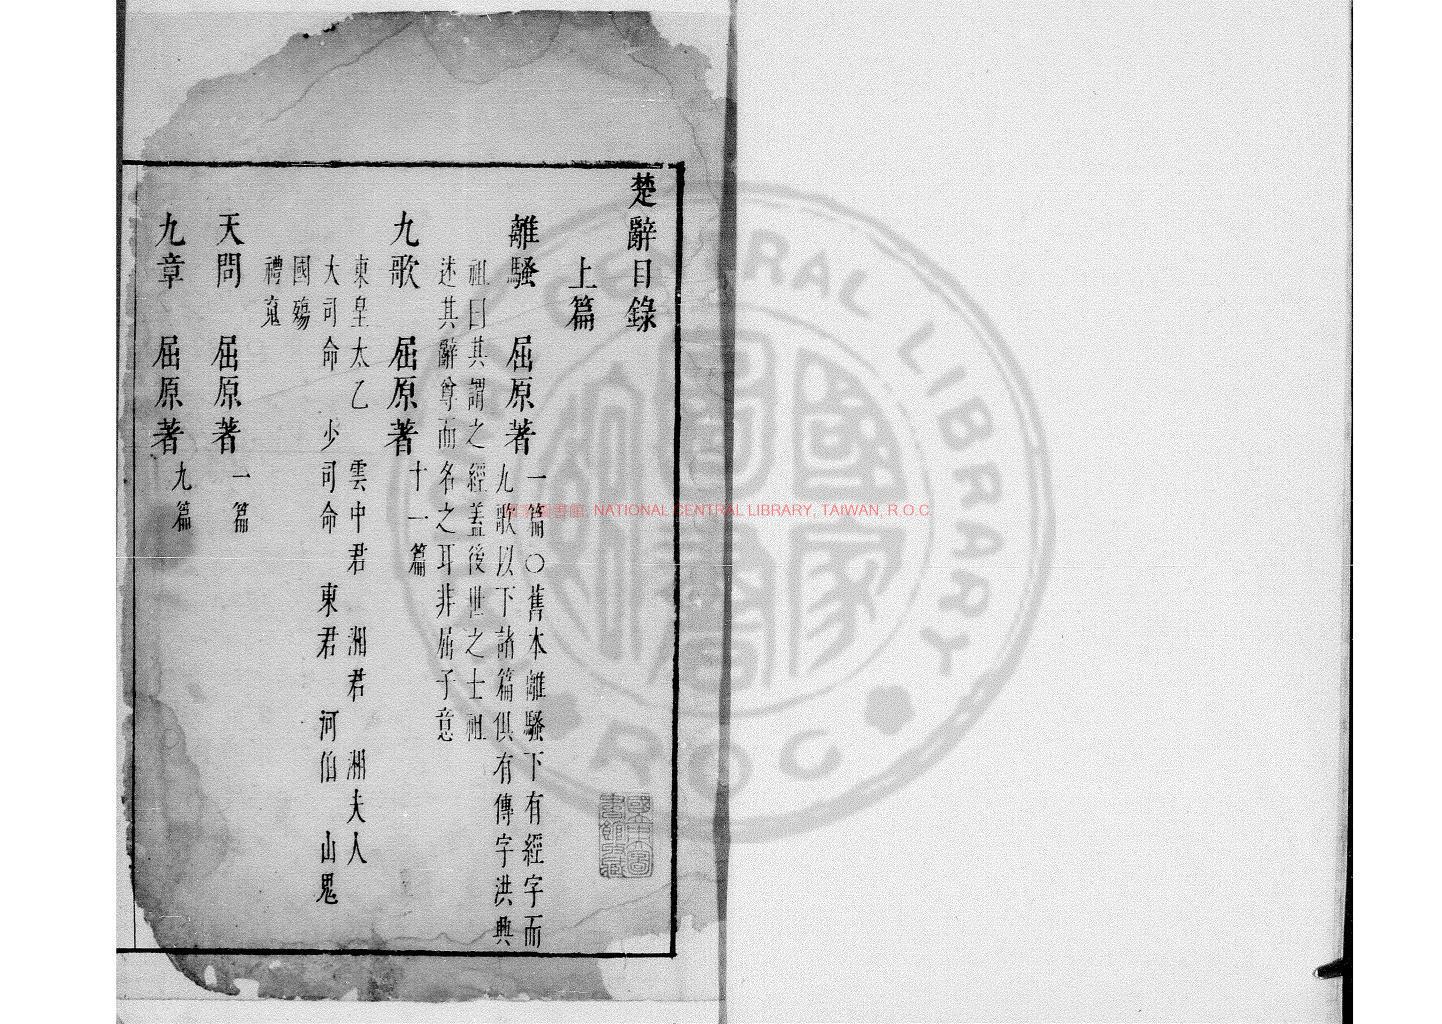 楚辭目錄
上篇
離騷 屈原著 一篇○舊本離騷下有經字而
九歌以下諸篇俱有傳字洪興
祖曰其謂之經蓋後世之士祖
述其辭尊而名之耳非屈子意
九歌 屈原著 十一篇
東皇太乙 雲中君 湘君 湘夫人
大司命 少司命 東君 河伯 山鬼
國殤
禮䰟
天問 屈原著 一篇
九章 屈原著 九篇
國立中央圖書館藏
NATIONAL CENTRAL LIBRARY, TAIWAN, R.O.C
國家圖書
CENTRAL LIBRARY
ROC